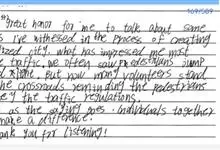 169/689
great honor for me to talk about some
I've witnessed in the process of creating
ized city. what has impressed me most
e traffic. we often saw pedestrians jump
But now many volunteers stand
the crossroads reminding the pedestrians
ey the traffic regulations.
as the saying goes. individuals together
make a difference.
ank you for listening!